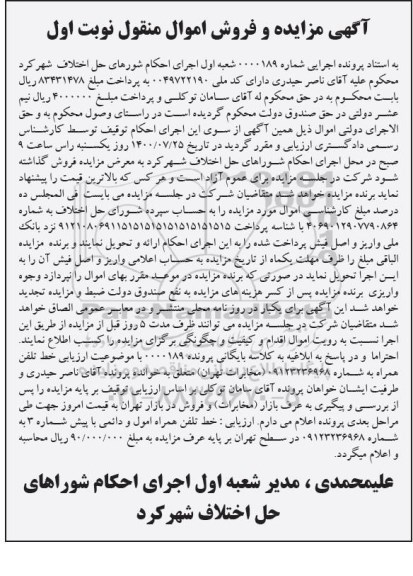 آگهی مزایده و فروش اموال منقول نوبت اول
به استناد پرونده اجرایی شماره ۰۰۰۰۱۸۹ شعبه اول اجرای احکام شورهای حل اختلاف شهرکرد
محکوم علیه آقای ناصر حیدری دارای کد ملی ۰۰۴۹۷۲۲۱۹۰ به پرداخت مبلغ ۸۳۴۳۱۴۷۸ ریال
بابت محکوم به در حق محکوم له آقای سامان توکلی و پرداخت مبلغ ۴۰۰۰۰۰۰ ریال نیم
عشر دولتی در حق صندوق دولت محکوم گردیده است در راستای وصول محکوم به و حق
الاجرای دولتی اموال ذیل همین آگهی از سوی این اجرای احکام توقیف توسط کارشناس
رسمی دادگستری ارزیابی و مقرر گردید در تاریخ ۱۴۰۰/۰۷/۲۵ روز یکشنبه راس ساعت ۹
صبح در محل اجرای احکام شوراهای حل اختلاف شهرکرد به معرض مزایده فروش گذاشته
شود شرکت در جلسه مزایده برای عموم آزاد است و هر کس که بالاترین قیمت را پیشنهاد
نماید برنده مزایده خواهد شد متقاضیان شرکت در جلسه مزایده می بایست فی المجلس ده
درصد مبلغ کارشناسی اموال مورد مزایده را به حساب سپرده شورای حل اختلاف به شماره
با شناسه پرداخت نزد بانک
ملی واریز و اصل فیش پرداخت شده را به این اجرای احکام ارائه و تحویل نمایند و برنده مزایده
الباقی مبلغ را ظرف مهلت یکماه از تاریخ مزایده به حساب اعلامی واریز و اصل فیش آن را به
این اجرا تحویل نماید در صورتی که برنده مزایده در موعد مقرر بهای اموال را نپردازد وجوه
واریزی برنده مزایده پس از کسر هزینه های مزایده به نفع صندوق دولت ضبط و مزایده تجدید
خواهد شد این آگهی برای یکبار در روز نامه محلی منتشر و در معابر عمومی الصاق خواهد
شد متقاضیان شرکت در جلسه مزایده می توانند ظرف مدت ۵ روز قبل از مزایده از طریق این
اجرا نسبت به رویت اموال اقدام و کیفیت و چگونگی برگزای مزایده را کسب اطلاع نمایند.
احتراما و در پاسخ به ابلاغیه به کلاسه بایگانی پرونده ۰۰۰۰۱۸۹ با موضوعیت ارزیابی خط تلفن
همراه به شماره ۰۹۱۲۳۲۳۶۹۶۸ (مخابرات تهران) متعلق به خوانده پرونده آقای ناصر حیدری و
ظرفیت ایشان خواهان پرونده آقای سامان توکلی بر اساس ارزیابی توقیف بر پایه مزایده را پس
از بررسی و پیگیری به عرف بازار (مخابرات) و فروش در بازار تهران به قیمت امروز جهت طی
مراحل بعدی پرونده اعلام می دارم. ارزیابی : خط تلفن همراه امول و دائمی با پیش شماره ۳ به
شماره ۰۹۱۲۳۲۳۶۹۶۸ در سطح تهران بر پایه عرف مزایده به مبلغ ۹۰/۰۰۰/۰۰۰ ریال محاسبه
و اعلام میگردد.
علیمحمدی ، مدیر شعبه اول اجرای احکام شوراهای
حل اختلاف شهرکرد